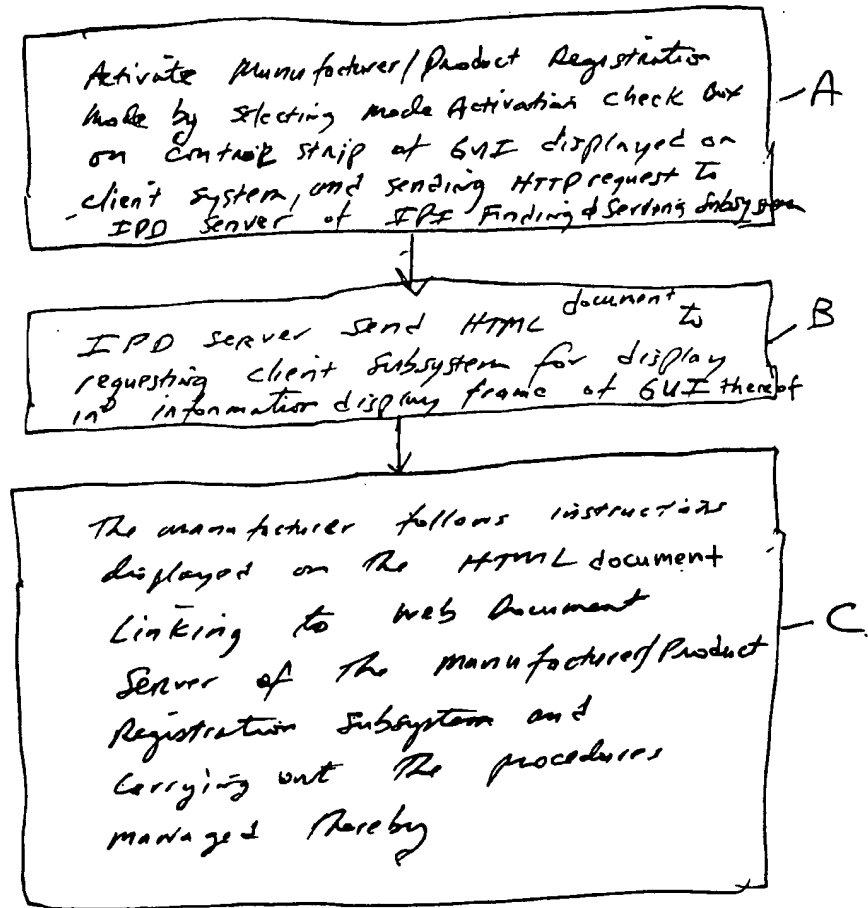 Activate Manufacturer/Product Registration
Mode by selecting mode Activation check Box
on control strip of GUI displayed on
client system, and sending HTTP request to
IPD server of IPI Finding & Serving Subsystem
A
IPD server send HTML document to
requesting client subsystem for display
in information display frame of GUI thereof
B
The manufacturer follows instructions
displayed on the HTML document
Linking to Web Document
Server of the Manufacturer/Product
Registration Subsystem and
Carrying out the procedures
managed thereby
C